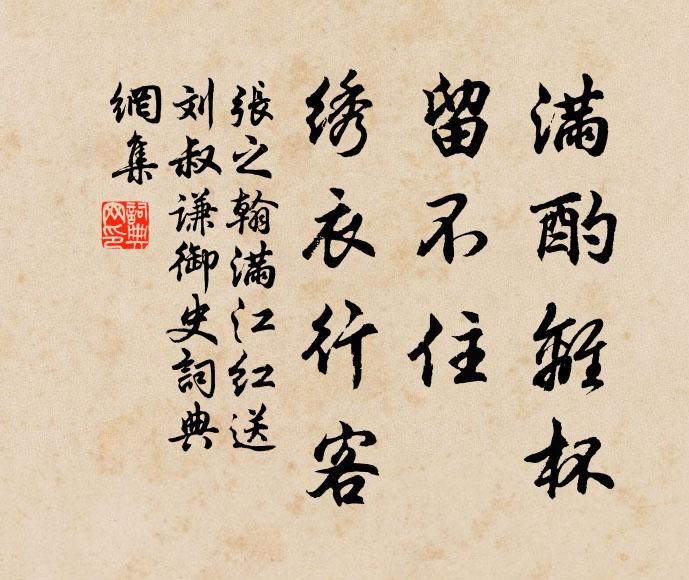 满酌離杯
留不住
绣衣行客
張之翰满江红送
刘叔谦御史詞典
網集
詞典
网印